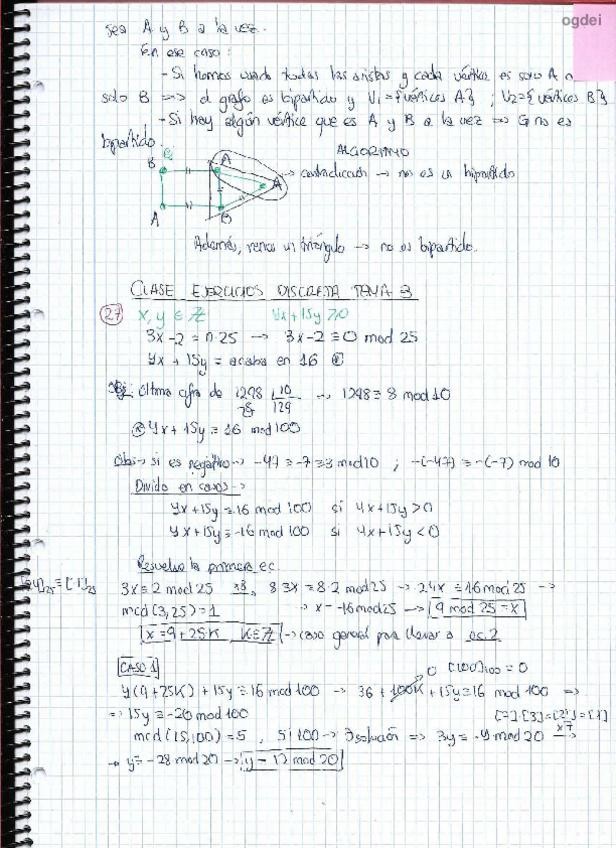 ogdei
sea A y B a la vez.
En ese caso:
- Si hemos usado todas las aristas y cada vértice es solo A o
solo B ==> el grafo es bipartido y V1={vértices A} ; V2={vértices B}
- Si hay algún vértice que es A y B a la vez => G no es
bipartido.
ALGORITMO
B A
→ contradicción → no es un bipartido
A
A B
Además, vemos un triángulo → no es bipartido.
CLASE EJERCICIOS DISCRETA TEMA 3
27 x, y ∈ Z 4x + 15y ≥ 0
3x - 2 = n·25 → 3x - 2 ≡ 0 mod 25
4x + 15y = acaba en 16
Última cifra de 1298 |10 → 1298 ≡ 8 mod 10
129
4x + 15y ≡ 16 mod 100
Obs → si es negativo → -47 ≡ -7 ≡ 3 mod 10 ; -(-47) ≡ -(-7) mod 10
Divido en casos →
4x + 15y ≡ 16 mod 100 si 4x + 15y > 0
4x + 15y ≡ -16 mod 100 si 4x + 15y < 0
Resuelvo la primera ec.
[24]25 = [-1]25
3x ≡ 2 mod 25 8·3x ≡ 8·2 mod 25 → 24x ≡ 16 mod 25 →
mcd(3,25) = 1 → x ≡ -16 mod 25 → 9 mod 25 = x
x = 9 + 25K, K ∈ Z → caso general para llevar a ec. 2
CASO 1
0 [100]100 = 0
4(9 + 25K) + 15y ≡ 16 mod 100 → 36 + 100K + 15y ≡ 16 mod 100 =>
=> 15y ≡ -20 mod 100
[7]·[3] = [21] = [1]
mcd(15,100) = 5, 5|100 → solución => 3y ≡ -4 mod 20 x7 →
→ y ≡ -28 mod 20 → y = 12 mod 20